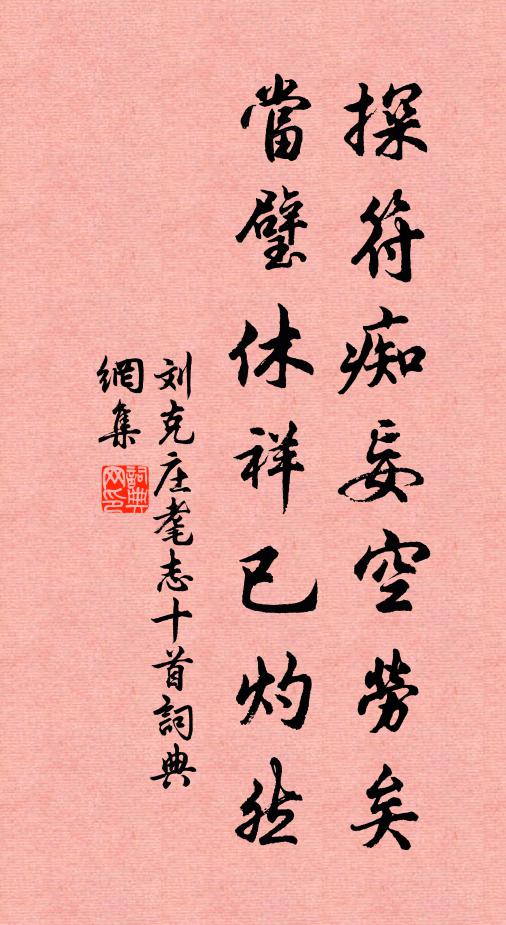 探符痴妄空勞矣
當璧休祥已灼然
刘克庄耄志十首詞典
網集
詞典网印